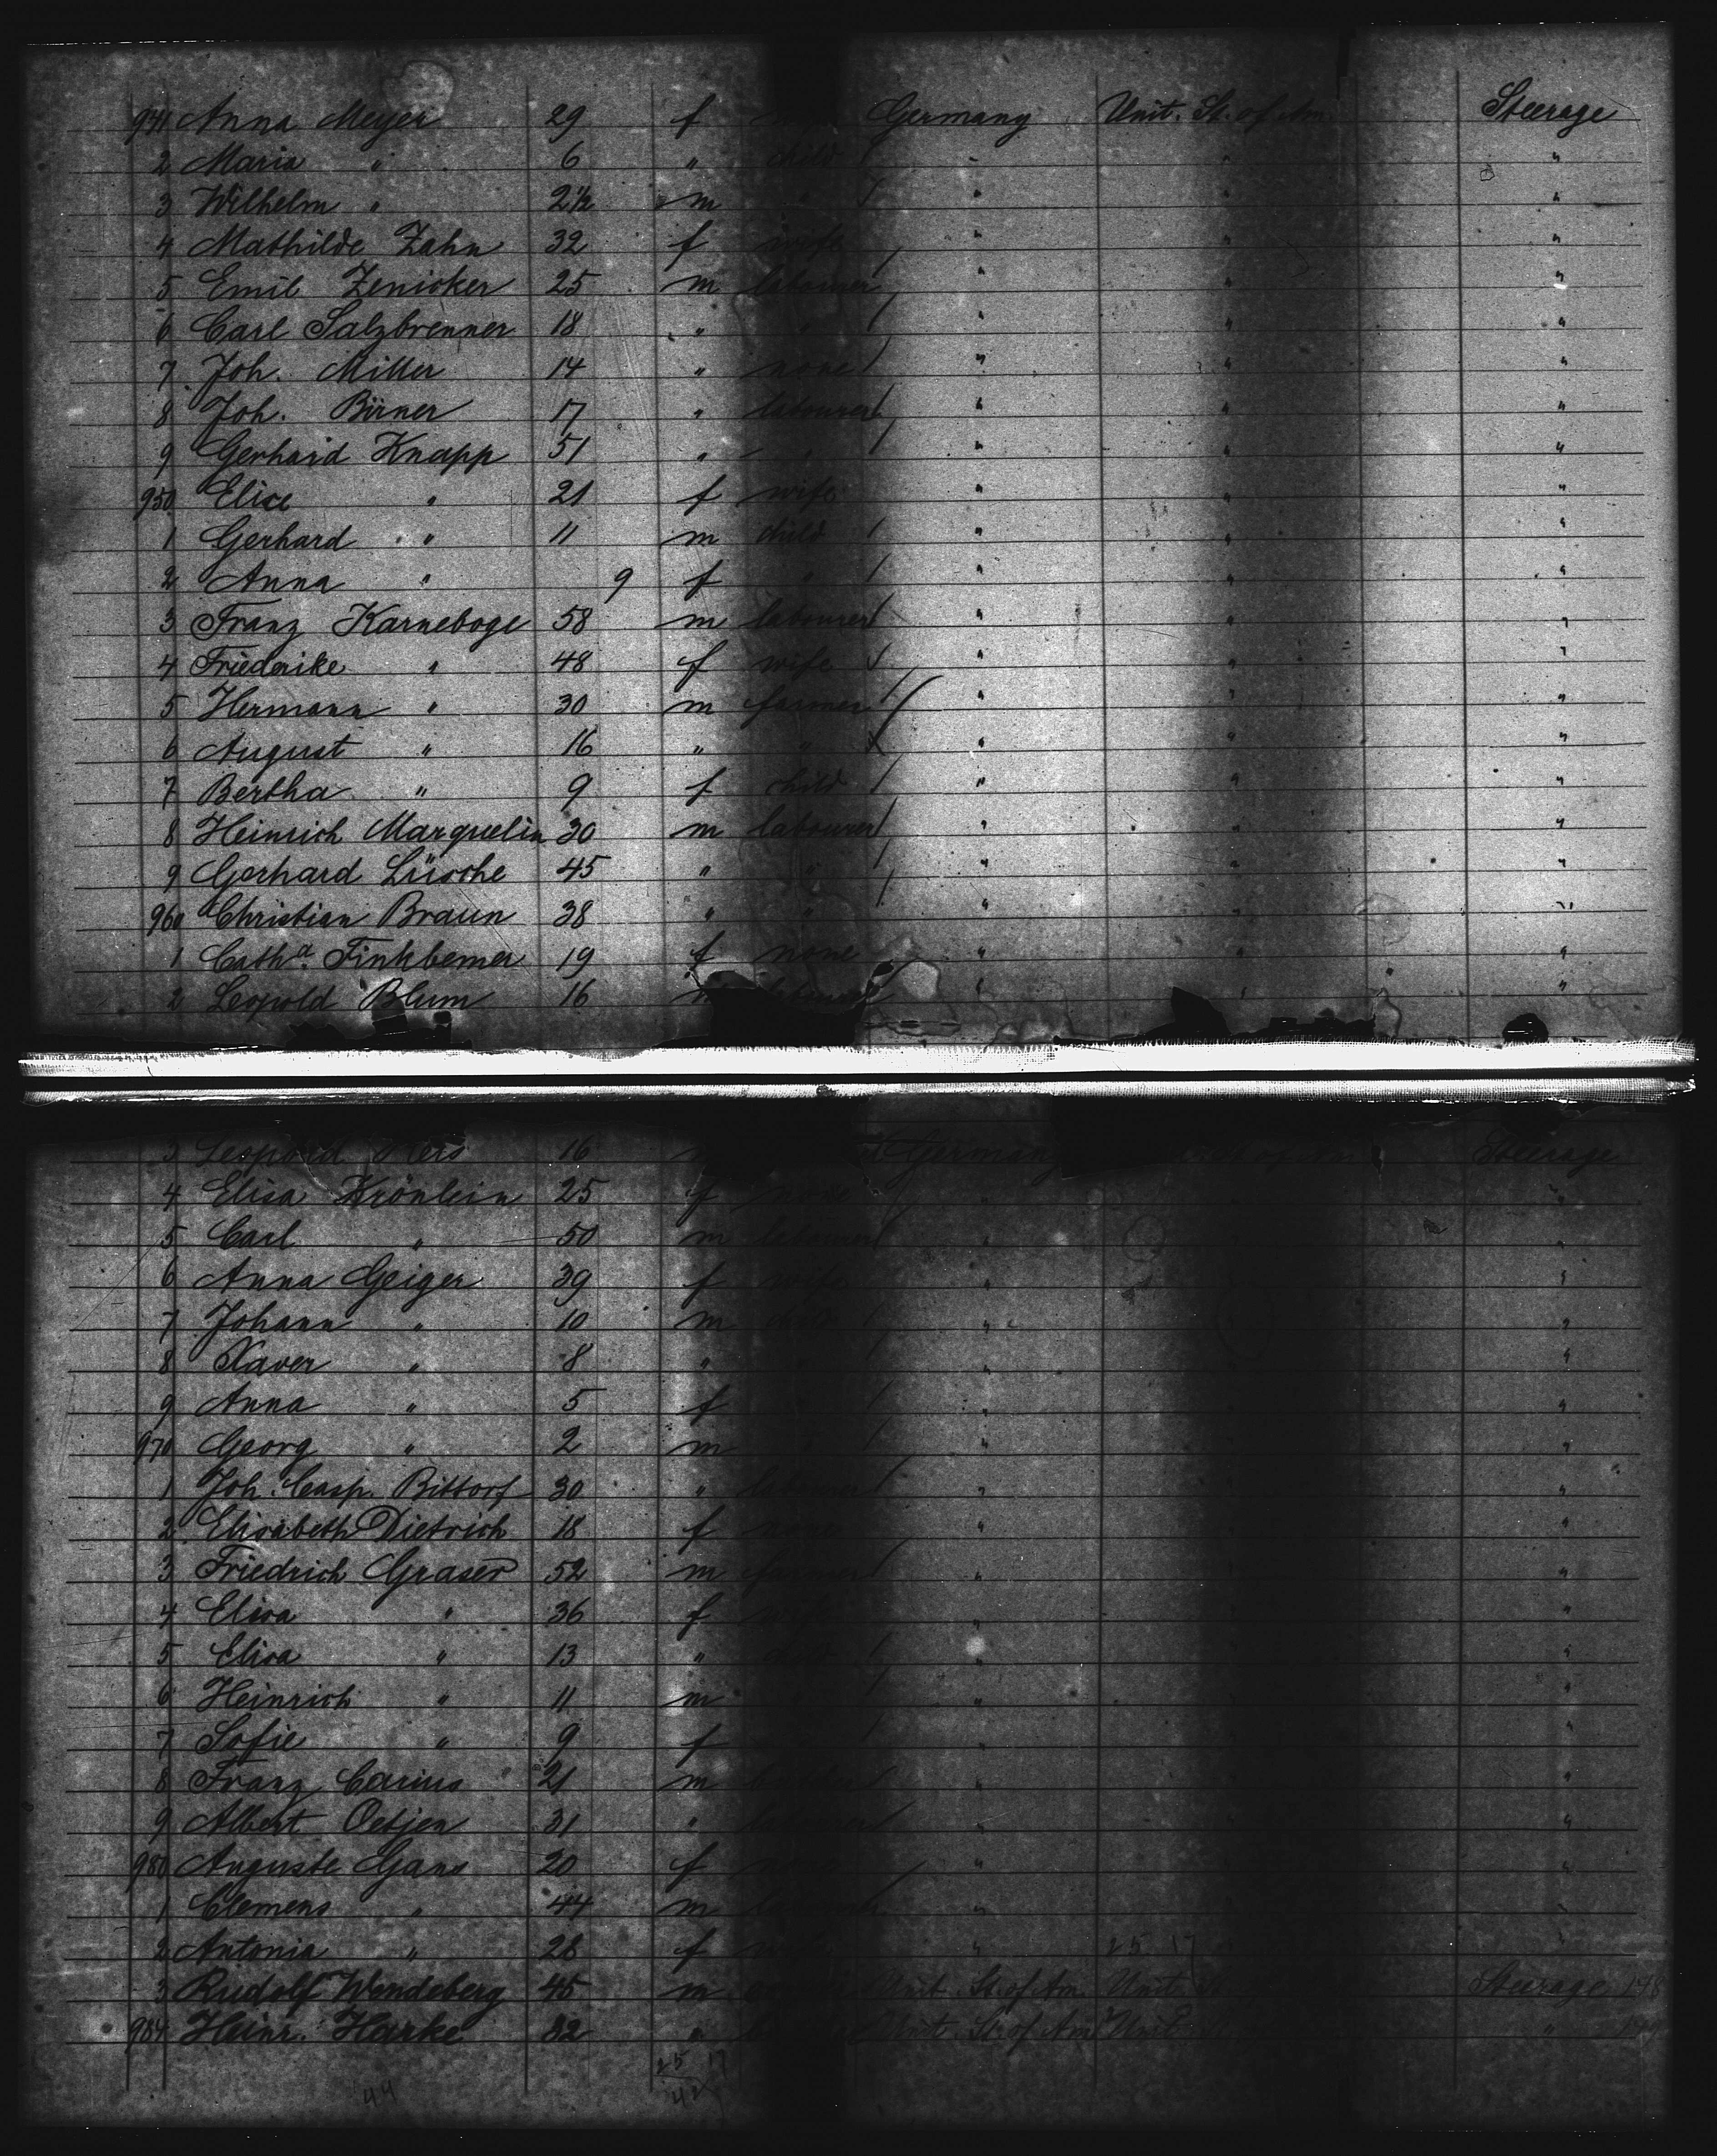 941 Anna Meyer 29 f Germany Unit. St. of Am. Steerage
2 Maria " 6 " child " " "
3 Wilhelm " 2½ m " " " "
4 Mathilde Zahn 32 f wife " " "
5 Emil Zenicker 25 m labourer " " "
6 Carl Salzbrenner 18 " " " " "
7 Joh. Miller 14 " none " " "
8 Joh. Birner 17 " labourer " " "
9 Gerhard Knapp 51 " " " " "
950 Elise " 21 f wife " " "
1 Gerhard " 11 m child " " "
2 Anna " 9 f " " " "
3 Franz Karneboge 58 m labourer " " "
4 Friederike " 48 f wife " " "
5 Hermann " 30 m farmer " " "
6 August " 16 " " " " "
7 Bertha " 9 f child " " "
8 Heinrich Marquelin 30 m labourer " " "
9 Gerhard Lüsche 45 " " " " "
960 Christian Braun 38 " " " " "
1 Cath.a Finkbemer 19 f none " " "
2 Leopold Blum 16 m " " "
3 Leopold 16 Germany Steerage
4 Elisa Krönlein 25 f none " "
5 Carl " 50 m labourer " "
6 Anna Geiger 39 f wife " "
7 Johann " 10 m child " "
8 Xaver " 8 " " "
9 Anna " 5 f " "
970 Georg " 2 m " "
1 Joh. Casp. Bittorf 30 " labourer " "
2 Elisabeth Dietrich 18 f none " "
3 Friedrich Graser 52 m farmer " "
4 Elisa " 36 f " "
5 Elisa " 13 " " "
6 Heinrich " 11 m " "
7 Sofie " 9 f " "
8 Franz Carius 21 m " "
9 Albert Oetjen 31 " labourer " "
980 Auguste Gans 20 f " "
1 Clemens " 44 m " "
2 Antonia " 28 f " 25 17 "
3 Rudolf Wendeberg 45 m Unit. St. of Am. Unit. Steerage
984 Heinr. Harke 32 " Unit. St. of Am. Unit. "
25 17
44 42